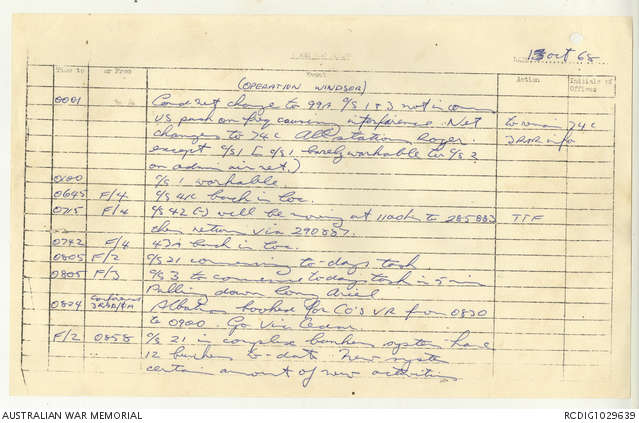 13 Oct 68
Time to or From Event Action Initials of Officer
(OPERATION WINDSOR)
0001 Comd net change to 99A C/S 1 & 3 not in comms
US push on freq causing interference. Net to remain 74c
changes to 74c All stations Roger 3RAR info
except C/S 1 (C/S 1 barely workable to C/S 2
on admin air net.)
C/S 1 workable
0645 F/4 C/S 41C back in loc.
0715 F/4 C/S 42 (-) will be moving at to 285883 TTF
then return via 290887.
0742 F/4 43A back in loc.
0805 F/2 C/S 21 commencing to-days task
0805 F/3 C/S 3 to commence todays task in 5 min
Pulling down long Aerial
0824 Albatross booked for CO's VR from 0830
to 0900. Go Via
F/2 0858 C/S 21 in complex bunker system have
12 bunkers to-date. New system
certain amount of new activities
AUSTRALIAN WAR MEMORIAL RCDIG1029639